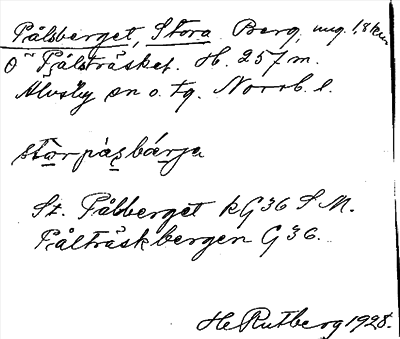 Pålsberget, Stora. Berg, ung. 1,8 km
O Pålsträsket. H. 257 m.
Älvsby sn o. tg. Norrb. l.
stɷrpàsbárja
St. Påbberget kG36 S M.
Pålträskbergen G 36.
H Rutberg 1928.